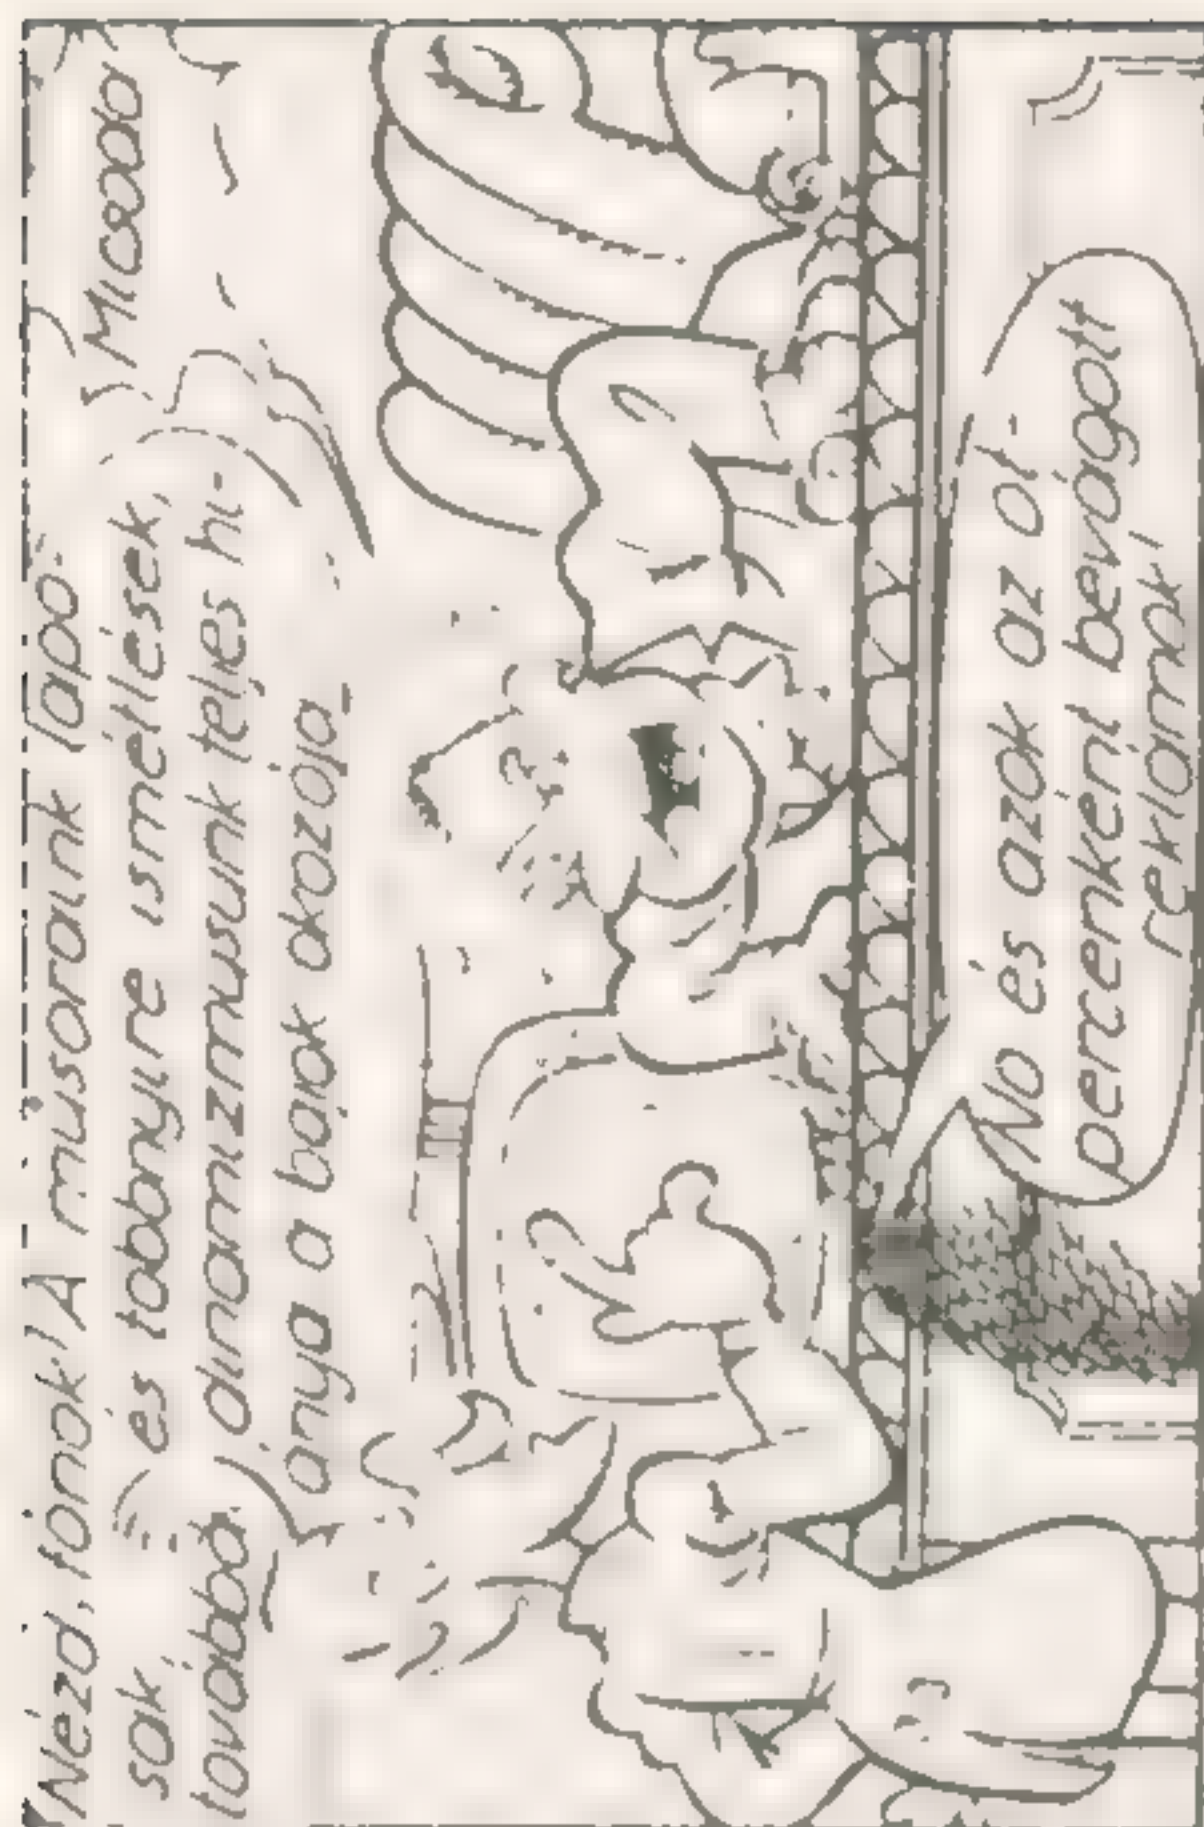 Nézd, főnök! A műsoraink lapo-
sak, és többnyire ismétlések,
továbbá dinamizmusunk teljes hi-
ánya a bajok okozója
Micsoda
No és azok az öt-
percenként bevágott
reklámok!